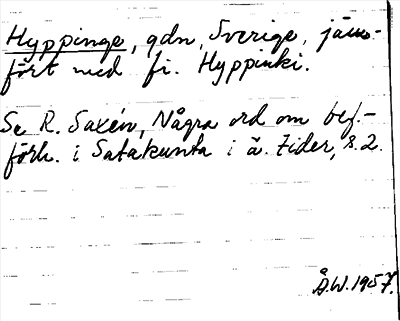 Hyppinge, gdn, Sverige, jäm-
fört med fi. Hyppinki.
Se R. Saxén, Några ord om bef.-
förh. i Satakunta i ä. tider, s. 2.
Å.W. 1957.